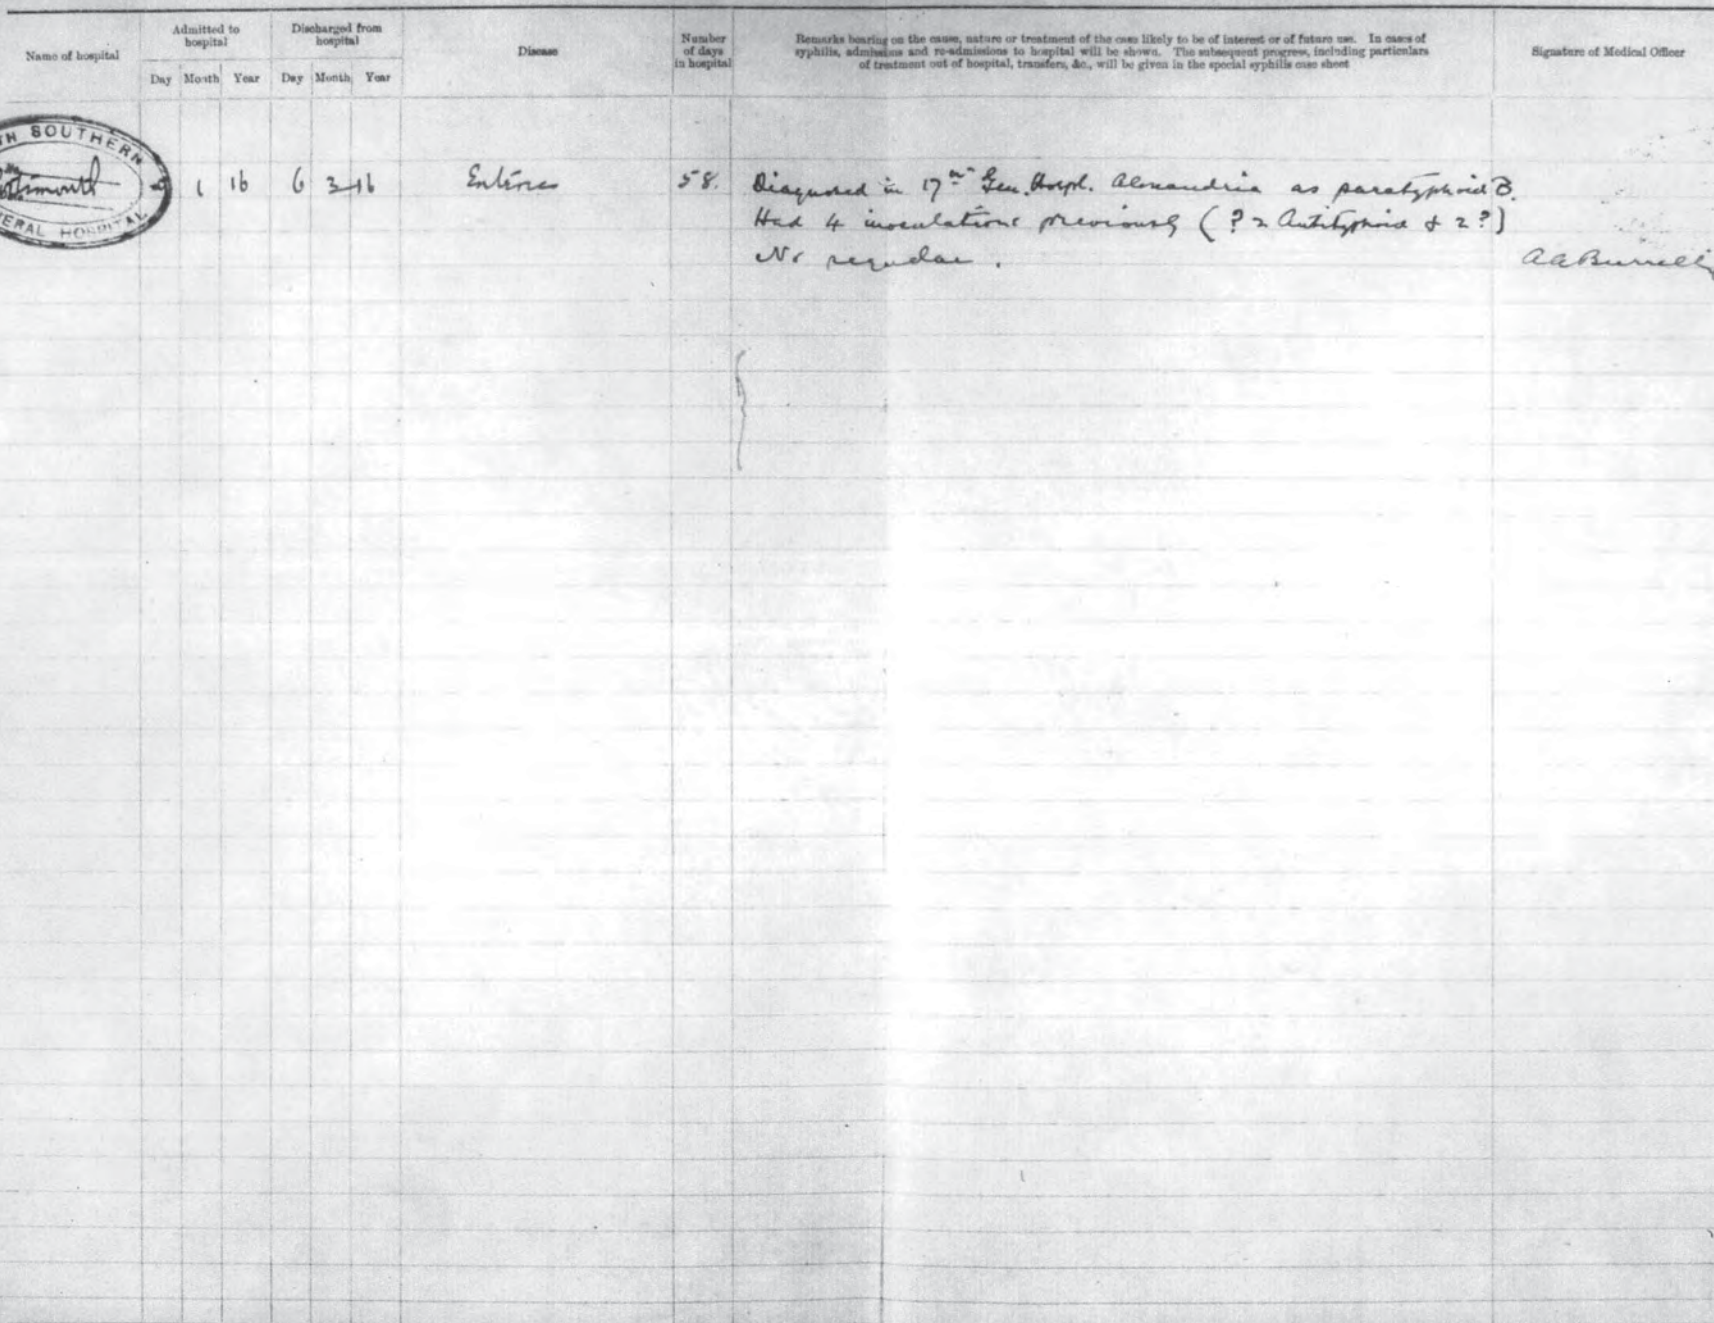 Name of hospital
Admitted to hospital
Day Month Year
Discharged from hospital
Day Month Year
Disease
Number of days in hospital
Remarks bearing on the cause, nature or treatment of the case likely to be of interest or of future use. In cases of
syphilis, admissions and re-admissions to hospital will be shown. The subsequent progress, including particulars
of treatment out of hospital, transfers, &c., will be given in the special syphilis case sheet
Signature of Medical Officer
TH SOUTHERN
ERAL HOSPITAL
1 16 6 3 16 Enteric 58. Diagnosed in 17th Gen. Hospl. Alexandria as paratyphoid B.
Had 4 inoculations previously (? 2 Antityphoid & 2 ?)
No sequelae.